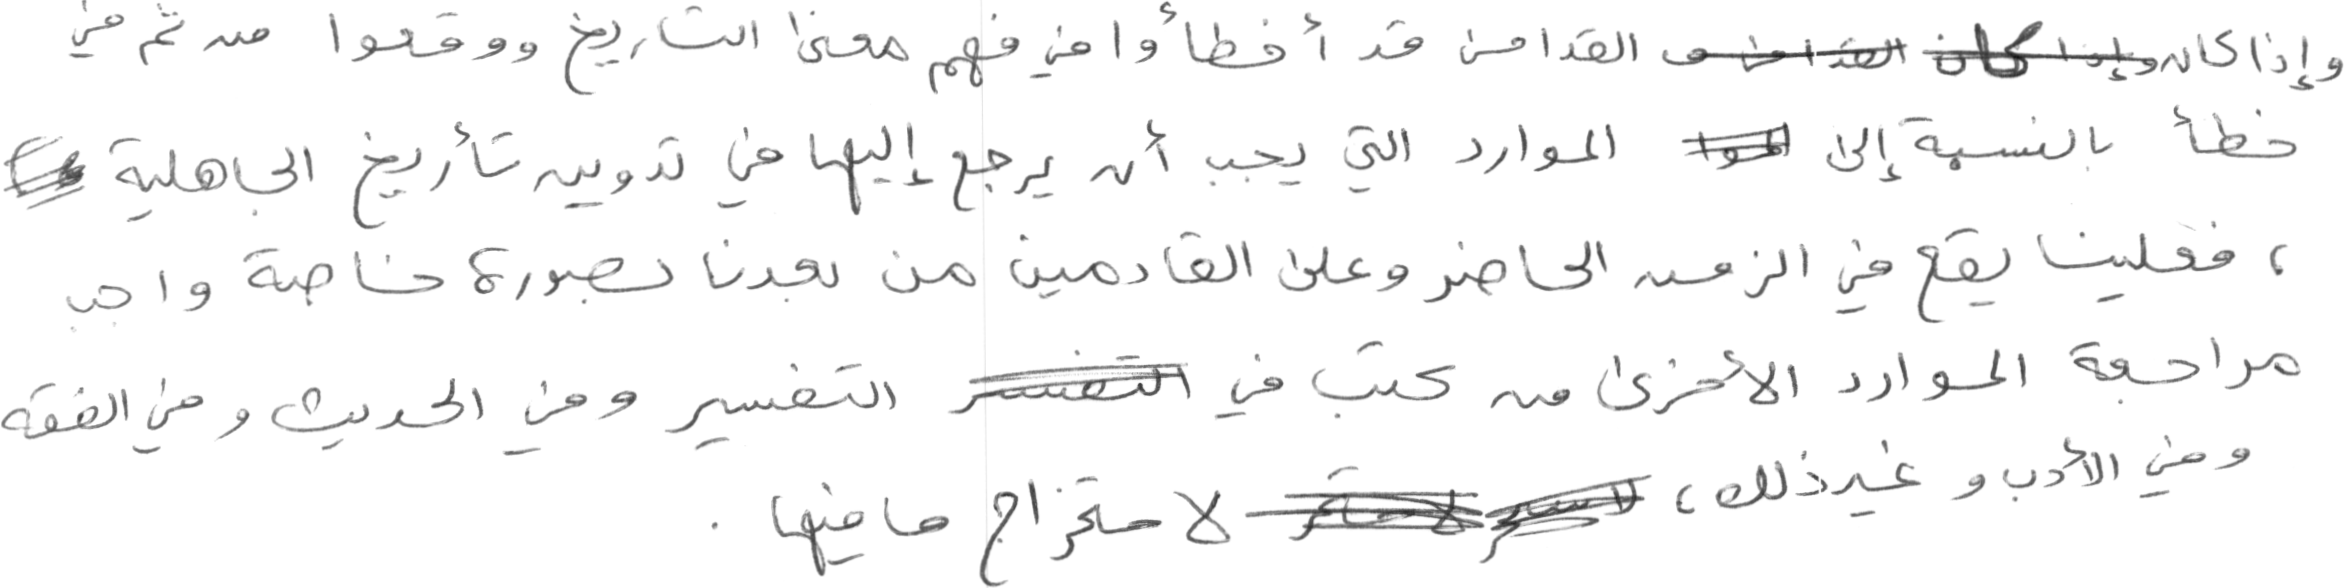 وإذا كان القدامى قد أخطأوا في فهم معنى التاريخ ووقعوا من ثم في
خطأ بالنسبة إلى الموارد التي يجب أن يرجع إليها في تدوين تأريخ الجاهلية
، فعلينا يقع في الزمن الحاضر وعلى القادمين من بعدنا بصورة خاصة واجب
مراجعة الموارد الأخرى من كتب في التفسير وفي الحديث وفي الفقه
وفي الأدب وغير ذلك، لاستخراج ما فيها .